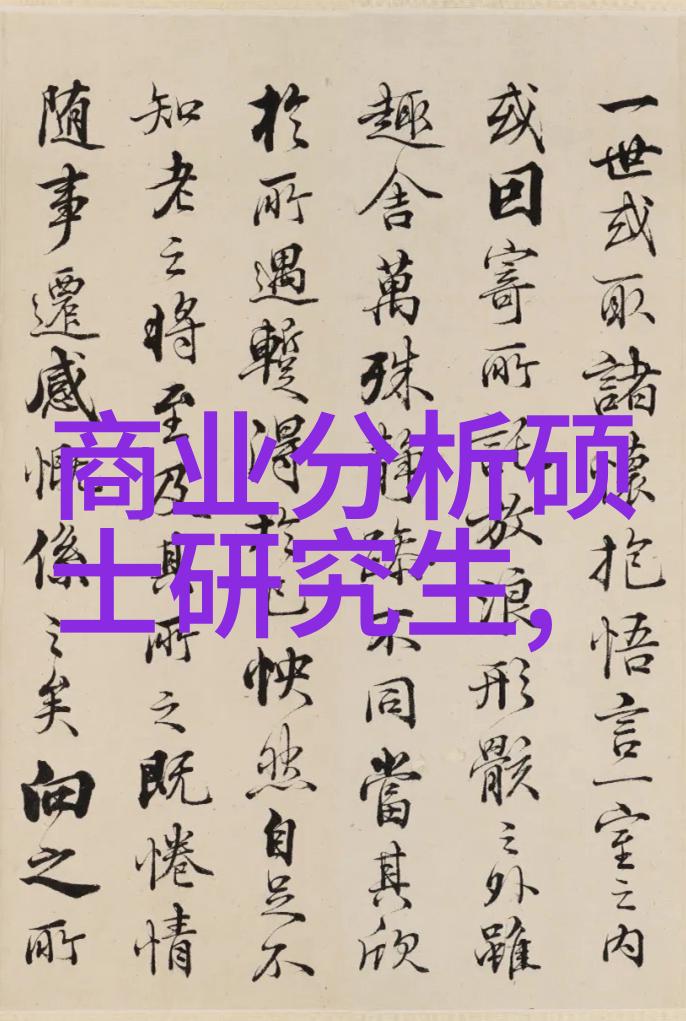 一世或取諸懷抱悟言一室之内
或因寄所託放浪形骸之外雖
趣舍萬殊静躁不同當其欣
於所遇蹔得於己怏然自足不
知老之將至及其所之既惓情
随事遷感慨係之矣向之所
商业分析硕
士研究生,